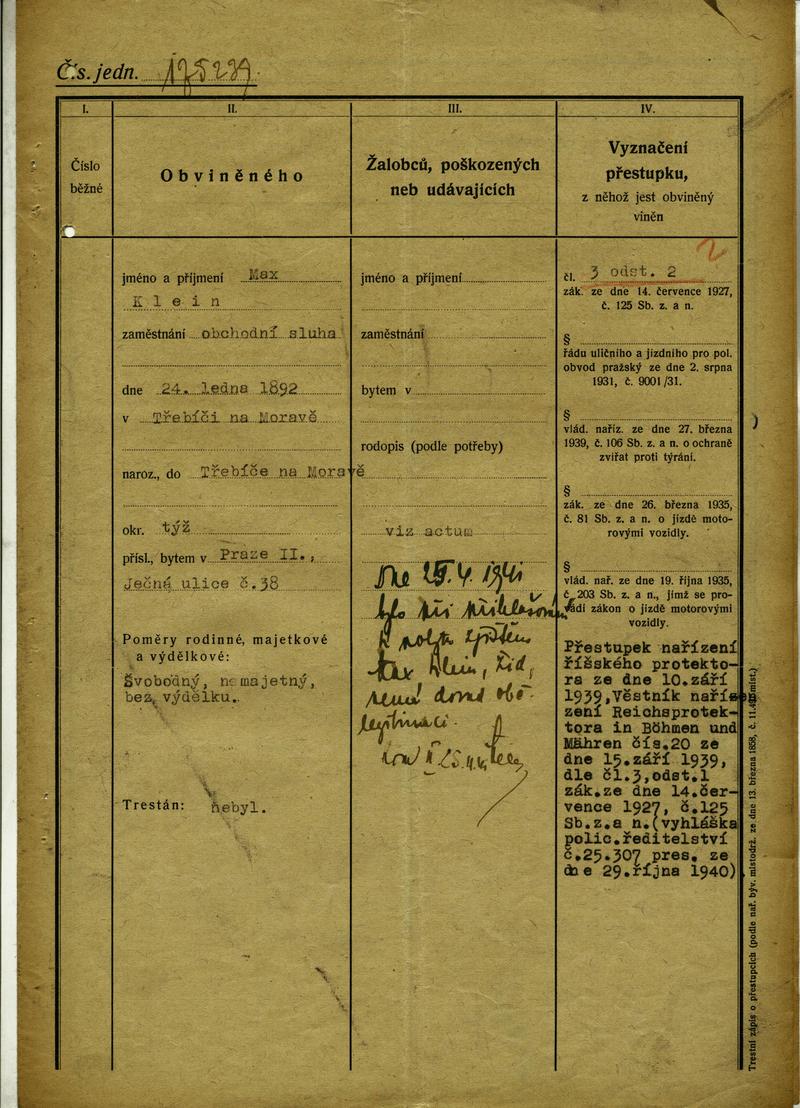 Čís. jedn.
I.
Číslo
běžné
II.
Obviněného
III.
Žalobců, poškozených
neb udávajících
IV.
Vyznačení
přestupku,
z něhož jest obviněný
viněn
jméno a příjmení Max
Klein
zaměstnání obchodní sluha
dne 24. ledna 1892
v Třebíči na Moravě
naroz., do Třebíče na Moravě
okr. týž
přísl., bytem v Praze II.,
Ječná ulice č.38
Poměry rodinné, majetkové
a výdělkové:
Svobodný, nemajetný,
bez výdělku.
Trestán: nebyl.
jméno a příjmení
zaměstnání
bytem v
rodopis (podle potřeby)
viz actum
1941
Klein, žid,
2
čl. 3 odst. 2
zák. ze dne 14. července 1927,
č. 125 Sb. z. a n.
§
řádu uličního a jízdního pro pol.
obvod pražský ze dne 2. srpna
1931, č. 9001/31.
§
vlád. naříz. ze dne 27. března
1939, č. 106 Sb. z. a n. o ochraně
zvířat proti týrání.
§
zák. ze dne 26. března 1935,
č. 81 Sb. z. a n. o jízdě moto-
rovými vozidly.
§
vlád. nař. ze dne 19. října 1935,
č. 203 Sb. z. a n., jímž se pro-
vádí zákon o jízdě motorovými
vozidly.
Přestupek nařízení
říšského protekto-
ra ze dne 10.září
1939,Věstník naří-
zení Reichsprotek-
tora in Böhmen und
Mähren čís.20 ze
dne 15.září 1939,
dle čl.3,odst.1
zák.ze dne 14.čer-
vence 1927, č.125
Sb.z.a n.(vyhláška
polic.ředitelství
č.25.307 pres. ze
dne 29.října 1940)
Trestní zápis o přestupcích (podle nař. býv. místodrž. ze dne 13. března 1858, č.